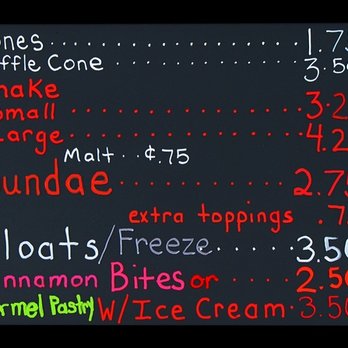 ones . . . . . . . . . . . . . . . . . 1.7
ffle Cone . . . . . . . . . . . . 3.5
hake
mall . . . . . . . . . . . . . . . . 3.2
arge . . . . . . . . . . . . . . . . 4.2
Malt . . ¢.75
undae . . . . . . . . . . . . 2.7
extra toppings .7
loats/Freeze . . . . . . 3.50
innamon Bites or . . . 2.50
rmel Pastry W/Ice Cream . 3.50